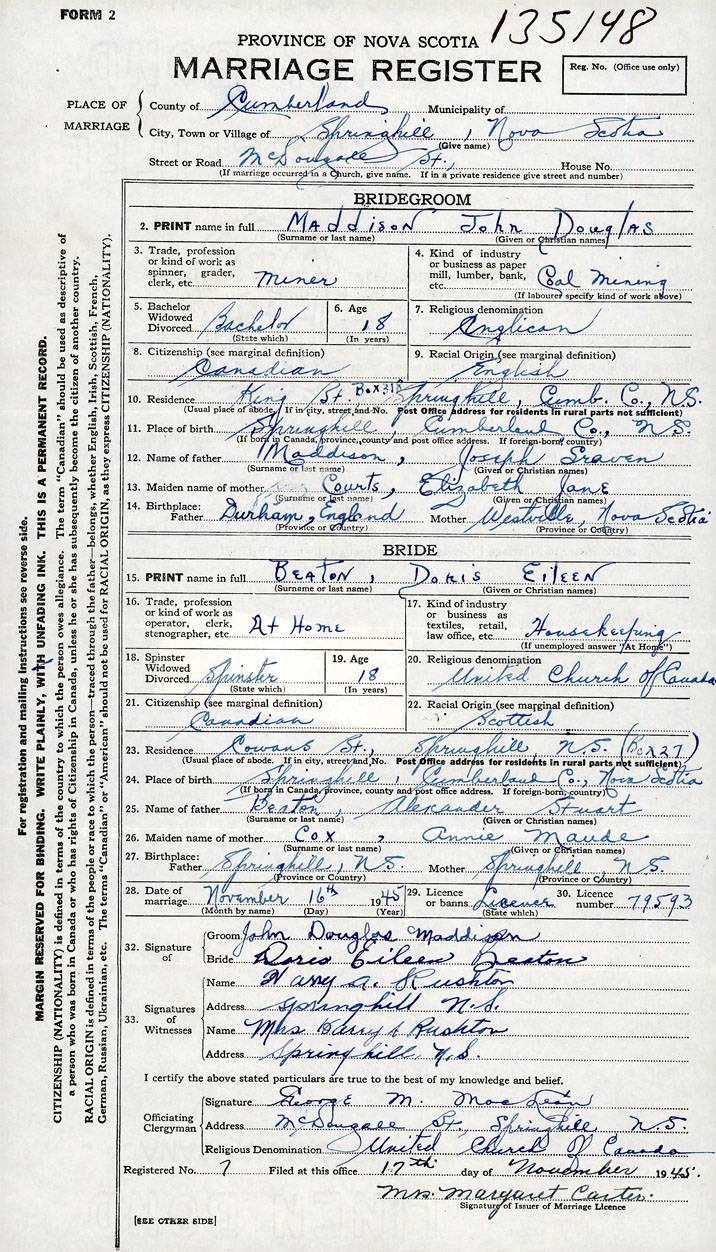 FORM 2
135148
PROVINCE OF NOVA SCOTIA
MARRIAGE REGISTER
Reg. No. (Office use only)
PLACE OF MARRIAGE
County of Cumberland Municipality of
City, Town or Village of Springhill, Nova Scotia
(Give name)
Street or Road McDougall St., House No.
(If marriage occurred in a Church, give name. If in a private residence give street and number)
BRIDEGROOM
2. PRINT name in full MADDISON JOHN DOUGLAS
(Surname or last name) (Given or Christian names)
3. Trade, profession or kind of work as spinner, grader, clerk, etc. Miner
4. Kind of industry or business as paper mill, lumber, bank, etc. Coal Mining
(If labourer specify kind of work above)
5. Bachelor Widowed Divorced Bachelor
(State which)
6. Age 18
(In years)
7. Religious denomination Anglican
8. Citizenship (see marginal definition) Canadian
9. Racial Origin (see marginal definition) English
10. Residence King St. Springhill, Cumb. Co., N.S.
(Usual place of abode. If in city, street and No. Post Office address for residents in rural parts not sufficient)
11. Place of birth Springhill, Cumberland Co., N.S.
(If born in Canada, province, county and post office address. If foreign-born, country)
12. Name of father Maddison, Joseph
(Surname or last name) (Given or Christian names)
13. Maiden name of mother Courts, Elizabeth Jane
(Surname or last name) (Given or Christian names)
14. Birthplace: Father Durham, England Mother Westville, Nova Scotia
(Province or Country) (Province or Country)
BRIDE
15. PRINT name in full BEATON, DORIS EILEEN
(Surname or last name) (Given or Christian names)
16. Trade, profession or kind of work as operator, clerk, stenographer, etc. At Home
17. Kind of industry or business as textiles, retail, law office, etc. Housekeeping
(If unemployed answer "At Home")
18. Spinster Widowed Divorced Spinster
(State which)
19. Age 18
(In years)
20. Religious denomination United Church of Canada
21. Citizenship (see marginal definition) Canadian
22. Racial Origin (see marginal definition) Scottish
23. Residence Cowans St., Springhill, N.S. (Box 27)
(Usual place of abode. If in city, street and No. Post Office address for residents in rural parts not sufficient)
24. Place of birth Springhill, Cumberland Co., Nova Scotia
(If born in Canada, province, county and post office address. If foreign-born, country)
25. Name of father Beaton, Alexander Stuart
(Surname or last name) (Given or Christian names)
26. Maiden name of mother Cox, Annie Maude
(Surname or last name) (Given or Christian names)
27. Birthplace: Father Springhill, N.S. Mother Springhill N.S.
(Province or Country) (Province or Country)
28. Date of marriage November 16th 1945
(Month by name) (Day) (Year)
29. Licence or banns License
(State which)
30. Licence number 79593
32. Signature of
Groom John Douglas Maddison
Bride Doris Eileen Beaton
33. Signatures of Witnesses
Name Harry A. Rushton
Address Springhill N.S.
Name Mrs. Harry A Rushton
Address Springhill, N.S.
I certify the above stated particulars are true to the best of my knowledge and belief.
Officiating Clergyman
Signature George M. MacLean
Address McDougall St., Springhill N.S.
Religious Denomination United Church of Canada
Registered No. 7 Filed at this office 17th day of November 1945.
Mrs. Margaret Carter.
Signature of Issuer of Marriage Licence
[SEE OTHER SIDE]
For registration and mailing instructions see reverse side.
MARGIN RESERVED FOR BINDING. WRITE PLAINLY, WITH UNFADING INK. THIS IS A PERMANENT RECORD.
CITIZENSHIP (NATIONALITY) is defined in terms of the country to which the person owes allegiance. The term "Canadian" should be used as descriptive of
a person who was born in Canada or who has rights of Citizenship in Canada, unless he or she has subsequently become the citizen of another country.
RACIAL ORIGIN is defined in terms of the people or race to which the person—traced through the father—belongs, whether English, Irish, Scottish, French,
German, Russian, Ukrainian, etc. The terms "Canadian" or "American" should not be used for RACIAL ORIGIN, as they express CITIZENSHIP (NATIONALITY).